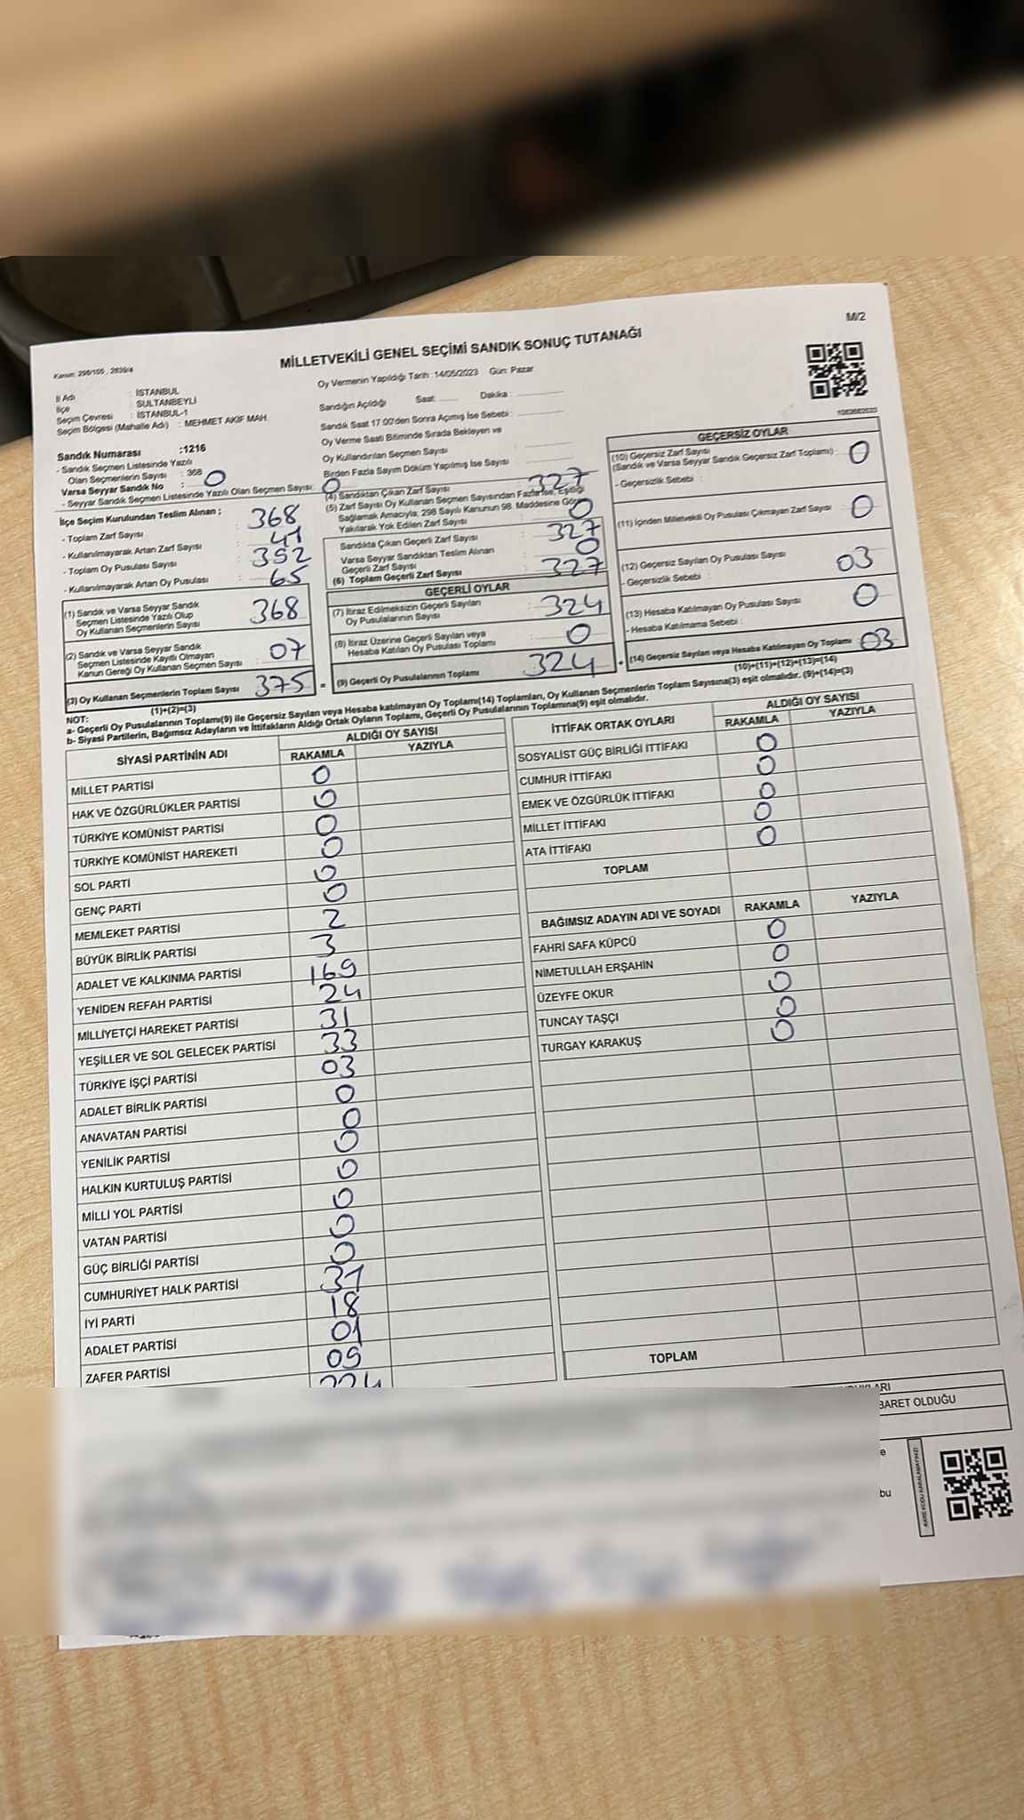 M/2
MİLLETVEKİLİ GENEL SEÇİMİ SANDIK SONUÇ TUTANAĞI
Kanun: 298/105 , 2839/4
İl Adı : İSTANBUL
İlçe : SULTANBEYLİ
Seçim Çevresi : İSTANBUL-1
Seçim Bölgesi (Mahalle Adı) : MEHMET AKİF MAH.
Sandık Numarası :1216
- Sandık Seçmen Listesinde Yazılı
Olan Seçmenlerin Sayısı : 368
Varsa Seyyar Sandık No : 0
- Seyyar Sandık Seçmen Listesinde Yazılı Olan Seçmen Sayısı: 0
Oy Vermenin Yapıldığı Tarih :14/05/2023 Gün: Pazar
Sandığın Açıldığı Saat: Dakika :
Sandık Saat 17:00'den Sonra Açımış İse Sebebi :
Oy Verme Saati Bitiminde Sırada Bekleyen ve
Oy Kullandırılan Seçmen Sayısı
Birden Fazla Sayım Döküm Yapılmış İse Sayısı
İlçe Seçim Kurulundan Teslim Alınan ;
- Toplam Zarf Sayısı : 368
- Kullanılmayarak Artan Zarf Sayısı : 41
- Toplam Oy Pusulası Sayısı : 392
- Kullanılmayarak Artan Oy Pusulası : 65
(1) Sandık ve Varsa Seyyar Sandık
Seçmen Listesinde Yazılı Olup
Oy Kullanan Seçmenlerin Sayısı 368
(2) Sandık ve Varsa Seyyar Sandık
Seçmen Listesinde Kayıtlı Olmayan
Kanun Gereği Oy Kullanan Seçmen Sayısı 07
(3) Oy Kullanan Seçmenlerin Toplam Sayısı 375 =
(1)+(2)=(3)
(4) Sandıktan Çıkan Zarf Sayısı 327
(5) Zarf Sayısı Oy Kullanan Seçmen Sayısından Fazla ise, Eşitliği
Sağlamak Amacıyla; 298 Sayılı Kanunun 98. Maddesine Göre
Yakılarak Yok Edilen Zarf Sayısı 0
Sandıkta Çıkan Geçerli Zarf Sayısı : 327
Varsa Seyyar Sandıktan Teslim Alınan
Geçerli Zarf Sayısı 0
(6) Toplam Geçerli Zarf Sayısı : 327
GEÇERLİ OYLAR
(7) İtiraz Edilmeksizin Geçerli Sayılan
Oy Pusulalarının Sayısı : 324
(8) İtiraz Üzerine Geçerli Sayılan veya
Hesaba Katılan Oy Pusulası Toplamı : 0
(9) Geçerli Oy Pusulalarının Toplamı : 324 +
GEÇERSİZ OYLAR
(10) Geçersiz Zarf Sayısı
(Sandık ve Varsa Seyyar Sandık Geçersiz Zarf Toplamı) : 0
- Geçersizlik Sebebi :
(11) İçinden Milletvekili Oy Pusulası Çıkmayan Zarf Sayısı 0
(12) Geçersiz Sayılan Oy Pusulası Sayısı 03
- Geçersizlik Sebebi :
(13) Hesaba Katılmayan Oy Pusulası Sayısı 0
- Hesaba Katılmama Sebebi :
(14) Geçersiz Sayılan veya Hesaba Katılmayan Oy Toplamı 03
(10)+(11)+(12)+(13)=(14)
NOT:
a- Geçerli Oy Pusulalarının Toplamı(9) ile Geçersiz Sayılan veya Hesaba katılmayan Oy Toplamı(14) Toplamları, Oy Kullanan Seçmenlerin Toplam Sayısına(3) eşit olmalıdır. (9)+(14)=(3)
b- Siyasi Partilerin, Bağımsız Adayların ve İttifakların Aldığı Ortak Oyların Toplamı, Geçerli Oy Pusulalarının Toplamına(9) eşit olmalıdır.
SİYASİ PARTİNİN ADI ALDIĞI OY SAYISI
RAKAMLA YAZIYLA
MİLLET PARTİSİ 0
HAK VE ÖZGÜRLÜKLER PARTİSİ 0
TÜRKİYE KOMÜNİST PARTİSİ 0
TÜRKİYE KOMÜNİST HAREKETİ 0
SOL PARTİ 0
GENÇ PARTİ 0
MEMLEKET PARTİSİ 2
BÜYÜK BİRLİK PARTİSİ 3
ADALET VE KALKINMA PARTİSİ 169
YENİDEN REFAH PARTİSİ 24
MİLLİYETÇİ HAREKET PARTİSİ 31
YEŞİLLER VE SOL GELECEK PARTİSİ 33
TÜRKİYE İŞÇİ PARTİSİ 03
ADALET BİRLİK PARTİSİ 0
ANAVATAN PARTİSİ 0
YENİLİK PARTİSİ 0
HALKIN KURTULUŞ PARTİSİ 0
MİLLİ YOL PARTİSİ 0
VATAN PARTİSİ 0
GÜÇ BİRLİĞİ PARTİSİ 0
CUMHURİYET HALK PARTİSİ 31
İYİ PARTİ 18
ADALET PARTİSİ 01
ZAFER PARTİSİ 09
İTTİFAK ORTAK OYLARI ALDIĞI OY SAYISI
RAKAMLA YAZIYLA
SOSYALİST GÜÇ BİRLİĞİ İTTİFAKI 0
CUMHUR İTTİFAKI 0
EMEK VE ÖZGÜRLÜK İTTİFAKI 0
MİLLET İTTİFAKI 0
ATA İTTİFAKI 0
TOPLAM
BAĞIMSIZ ADAYIN ADI VE SOYADI RAKAMLA YAZIYLA
FAHRİ SAFA KÜPCÜ 0
NİMETULLAH ERŞAHİN 0
ÜZEYFE OKUR 0
TUNCAY TAŞÇI 0
TURGAY KARAKUŞ 0
TOPLAM
BARET OLDUĞU
bu